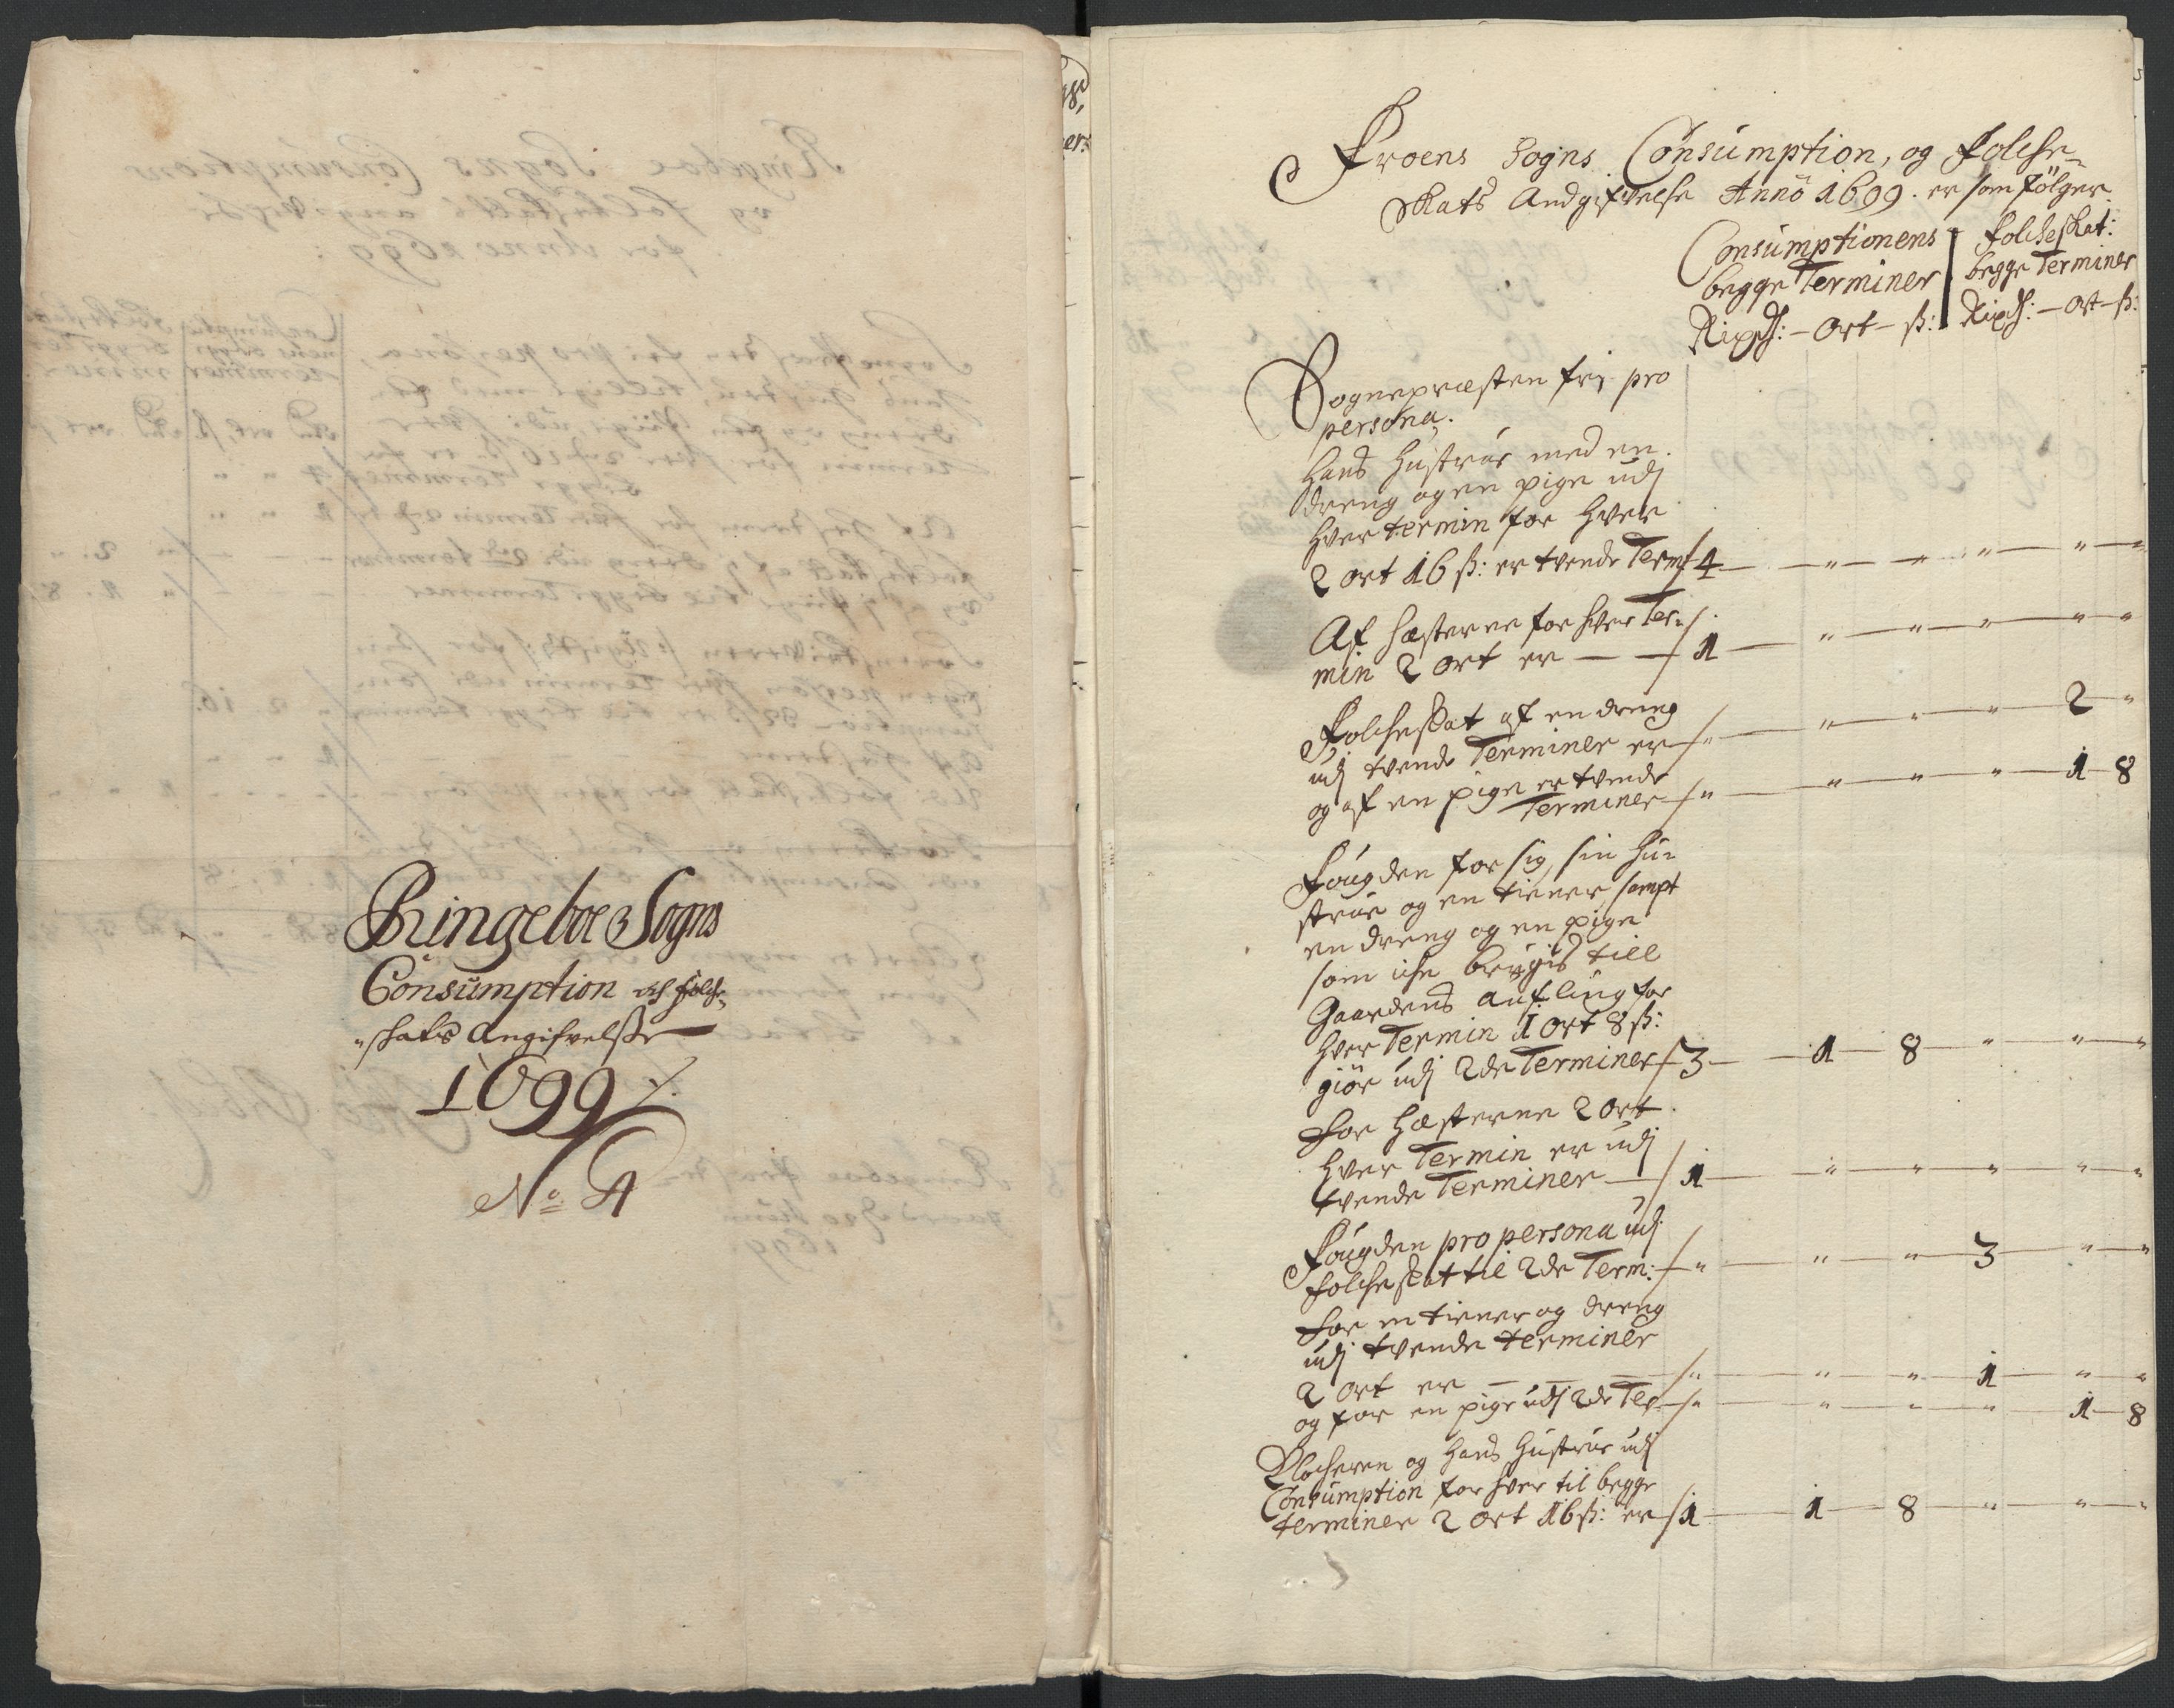 Ringeboe Sogns
Consumption och folche„
„skats Angifvelsse
1699 ⁒
No 4
Froens Sogns Consumption, og Folche„
Skats Andgifvelse Annô 1699. er som fölger.
Consumptionens
begge Terminer
Rixdr: – Ort – ß:
Folcheskat:
begge Terminer
Rixdr: – Ort – ß:
Sognepræsten fri pro
persona.
hans Hustrue med en
dreng og en pige udj
hver termin for hver
2 ort 16 ß: er tvende Term 4 — „ — „ — „ — „ — „
Af hesterne for hver Ter„
min 2 ort er — — 1 — „ — „ — „ — „ — „
Folcheskat af en dreng
udj tvende Terminer er „ — „ — „ — „ — 2 — „
og af en pige er tvende
Terminer „ — „ — „ — „ — 1 — 8
Fougden for sig, sin Hu„
strue og en tiener, sampt
en dreng og en pige
som iche brugis till
Gaardens aufling for
hver Termin 1 ort 8 ß:
giör udj 2de Terminer 3 — 1 — 8 — „ — „ — „
for hesterne 2 ort
hver Termin er udj
tvende Terminer — 1 — „ — „ — „ — „ — „
Fougden pro persona udj
folcheskat til 2de Term: „ — „ — „ — 3 — „ — „
for en tiener og dreng
udj tvende terminer
2 ort er — — — „ — „ — „ — 1 — „ — „
og for en pige udj 2de Ter „ — „ — „ — „ — 1 — 8
Klocheren og hans Hustrue udj
Consumption for hver til begge
terminer 2 ort 16 ß: er 1 — 1 — 8 — „ — „ — „